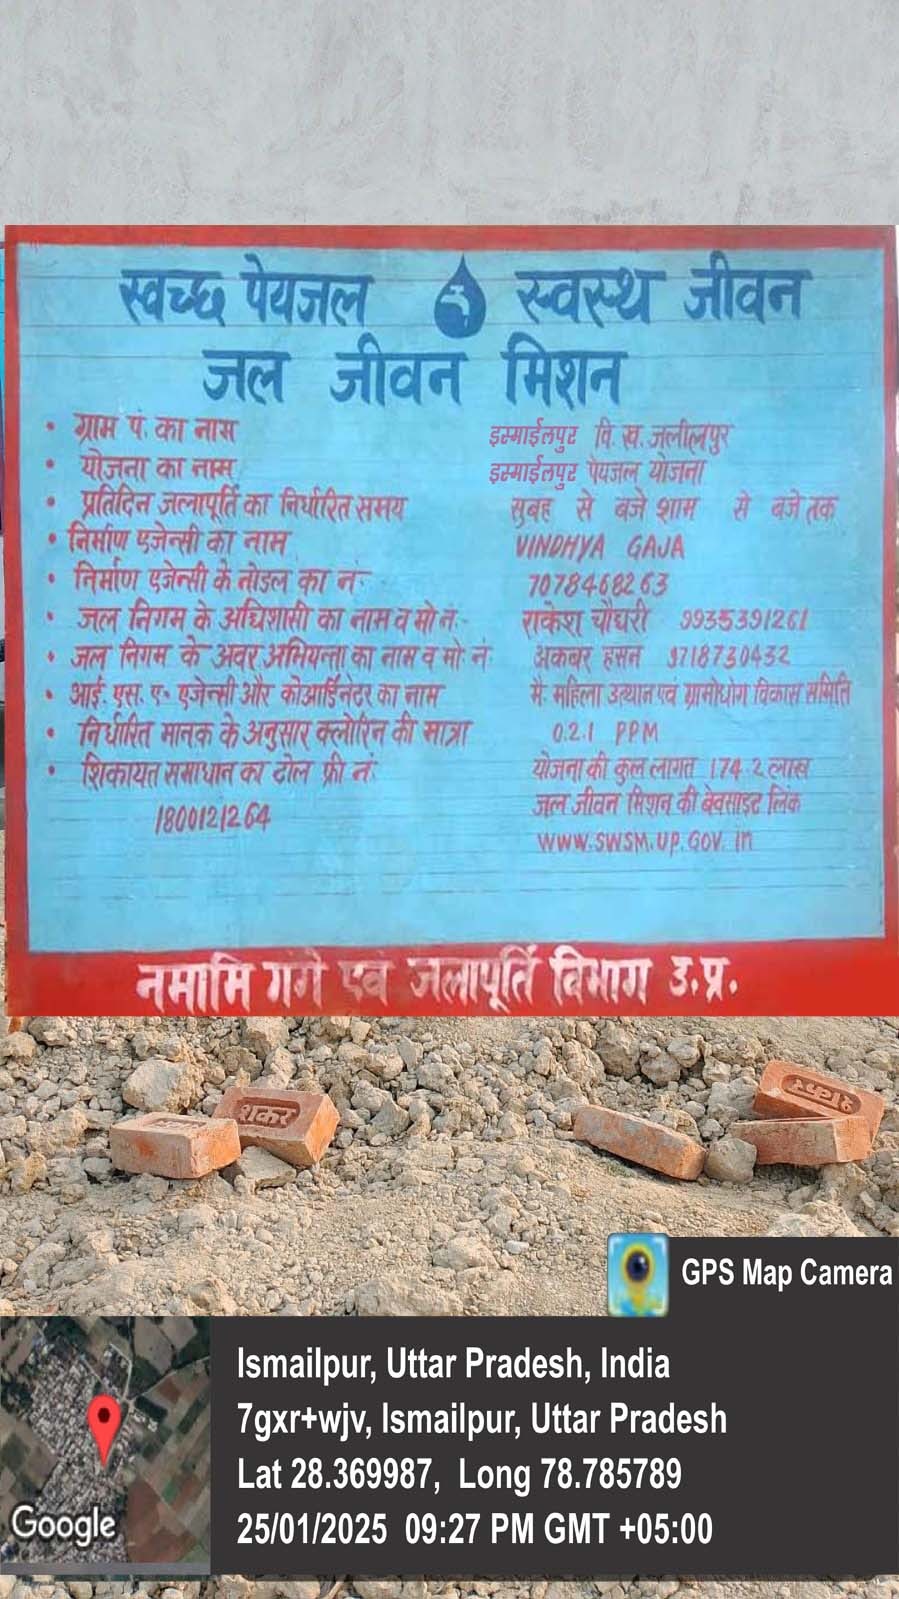 स्वच्छ पेयजल स्वस्थ जीवन
जल जीवन मिशन
• ग्राम पं. का नास इस्माईलपुर वि. ख. जलीलपुर
• योजना का नाम इस्माईलपुर पेयजल योजना
• प्रतिदिन जलापूर्ति का निर्धारित समय सुबह से बजे शाम से बजे तक
• निर्माण एजेन्सी का नाम VINDHYA GAJA
• निर्माण एजेन्सी के नोडल का नं- 7078468263
• जल निगम के अधिशासी का नाम व मो नं- राकेश चौधरी 9935391261
• जल निगम के अवर अभियन्ता का नाम व मो. नं अकबर हसन 9718730432
• आई. एस. ए- एजेन्सी और कोआर्डिनेटर का नाम मै. महिला उत्थान एवं ग्रामोधोग विकास समिति
• निर्धारित मानक के अनुसार क्लोरिन की मात्रा 0.2.1 PPM
• शिकायत समाधान का टोल फ्री नं. योजना की कुल लागत 174.2 लाख
1800121264 जल जीवन मिशन की बेवसाइट लिंक
www.SWSM.UP.GOV.in
नमामि गंगे एवं जलापूर्ति विभाग उ.प्र.
शकर
GPS Map Camera
Ismailpur, Uttar Pradesh, India
7gxr+wjv, Ismailpur, Uttar Pradesh
Lat 28.369987, Long 78.785789
25/01/2025 09:27 PM GMT +05:00
Google